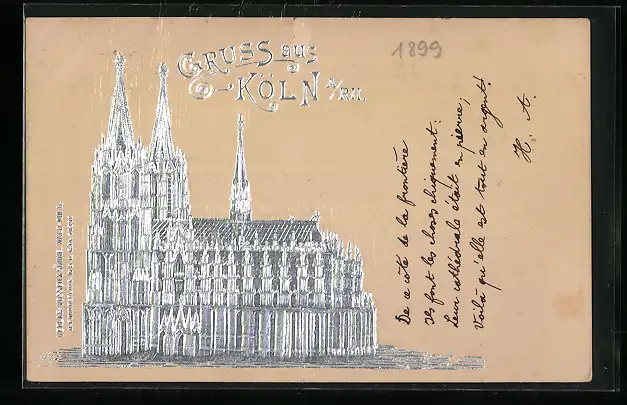 GRUSS aus
KÖLN A/RH.
1899
De ce côté de la frontière
Ils font les choses chiquement:
Leur cathédrale était en pierre,
Voilà qu'elle est tout en argent!
H. A.